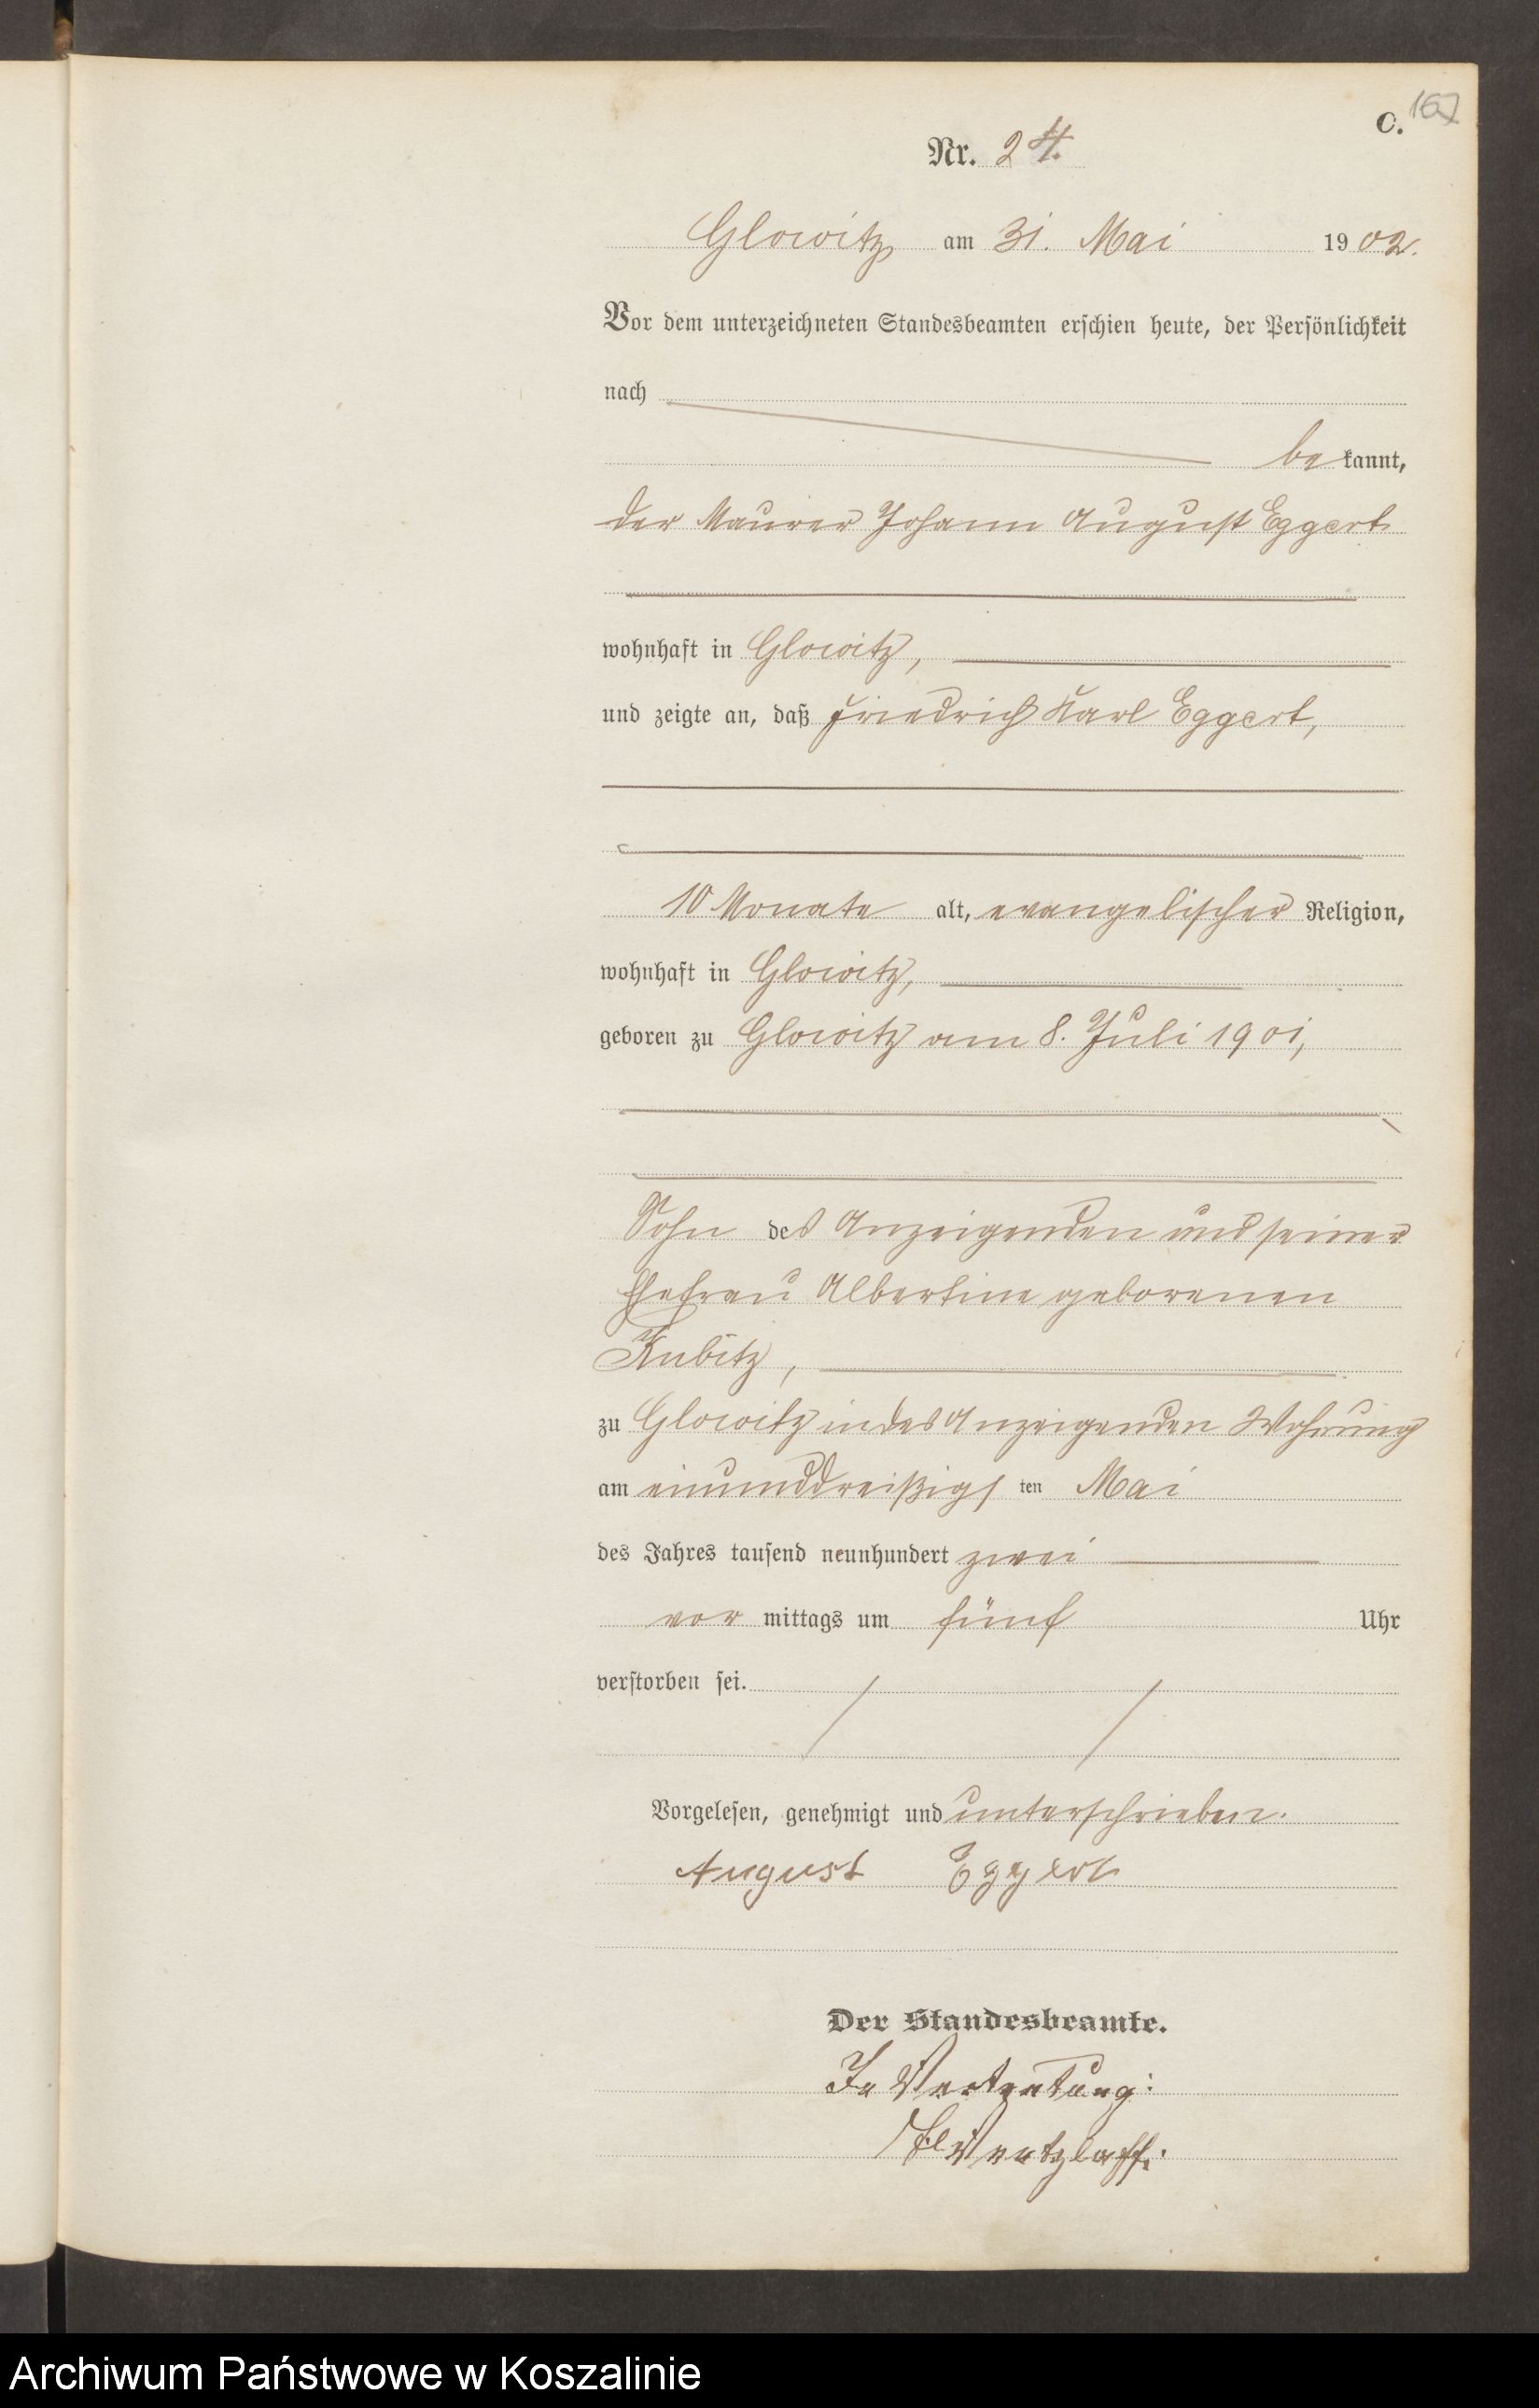 C. 167
Nr. 24.
Glowitz am 31. Mai 1902.
Vor dem unterzeichneten Standesbeamten erschien heute, der Persönlichkeit
nach
bekannt,
der Maurer Johann August Eggert
wohnhaft in Glowitz,
und zeigte an, daß Friedrich Karl Eggert,
10 Monate alt, evangelischer Religion,
wohnhaft in Glowitz,
geboren zu Glowitz am 8. Juli 1901,
Sohn des Anzeigenden und seiner
Ehefrau Albertine geborenen
Kubitz,
zu Glowitz in des Anzeigenden Wohnung
am einunddreißigsten Mai
des Jahres tausend neunhundert zwei
vormittags um fünf Uhr
verstorben sei.
Vorgelesen, genehmigt und unterschrieben.
August Eggert
Der Standesbeamte.
In Vertretung:
Archiwum Państwowe w Koszalinie